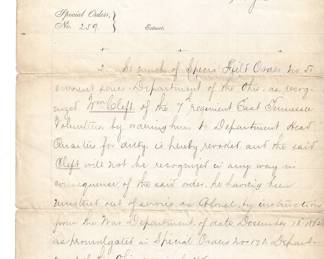 Special Orders,
No. 259.
Extract.
2. So much of Special Field Order No. 5
current series Department of the Ohio, as recog-
nized Wm Cleft of the 7th regiment East Tennessee
Volunteers by ordering him to Department Head
Quarters for duty, is hereby revoked and the said
Cleft will not be recognized in any way in
consequence of the said order, he having been
mustered out of service as Colonel, by instructions
from the War Department, of date December 18
as promulgated in Special Orders No. Depart-